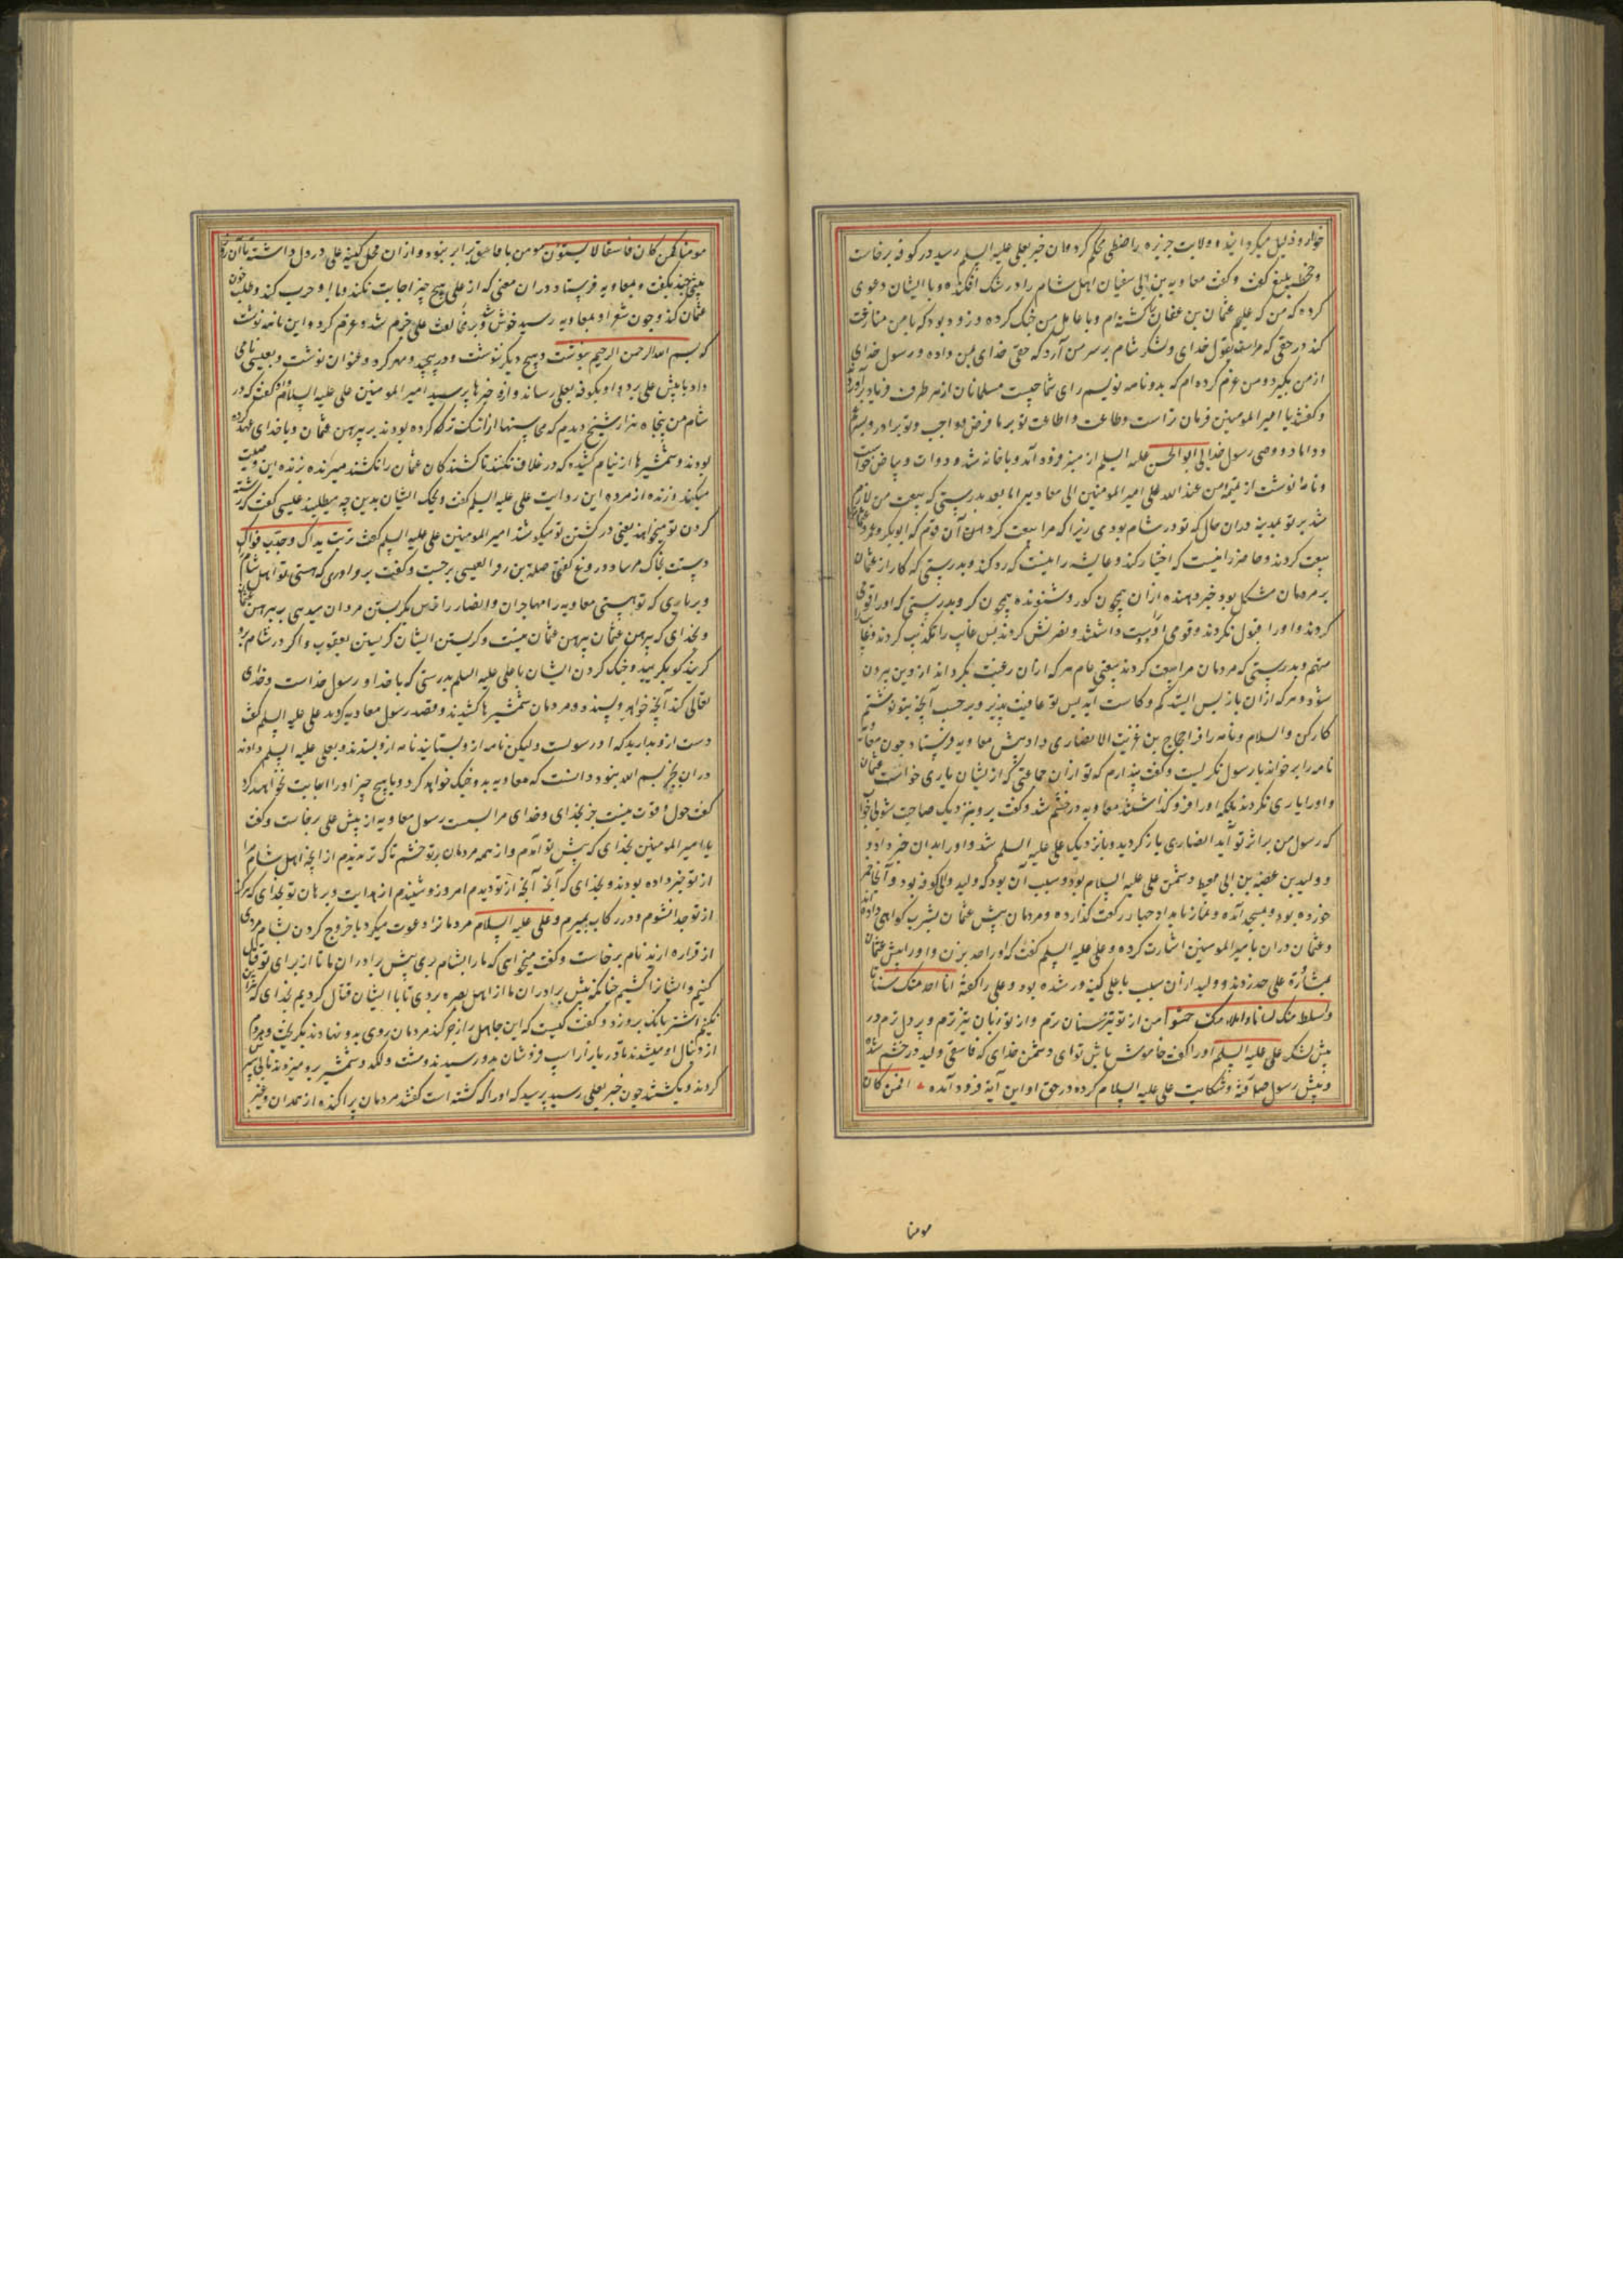 خوار و ذلیل میکردانید و ولایت جزیره را ضبطی محکم کرد و آن خبر بعلی علیه السلم رسید در کوفه برخاست
و خطبه بلیغ گفت و گفت معاویه بن ابی سفیان اهل شام را در شک افکنده و با ایشان دعوی
کرده که من که علیم عثمان بن عفان را کشته‌ام و با عامل من جنک کرده و زود بود که با من منازعت
کند در حقی که مراست بقول خدای و لشکر شام بر سر من آرد که حقی خدای بمن داده و رسول خدای
از من بگیرد و من عزم کرده‌ام که بدو نامه نویسم رای شما چیست مسلمانان از هر طرف فریاد برآوردند
و گفتند یا امیر المومنین فرمان تراست و طاعت و اطاعت تو بر ما فرض و واجب و تو برادر و پسر عم
و داماد و وصی رسول خدایی ابو الحسن علیه السلم از منبر فرود آمد و با خانه شد و دوات و بیاض خواست
و نامه نوشت از من عند الله علی امیر المومنین الی معاویه اما بعد بدرستی که بیعت من لازم
شد بر تو بمدینه در آن حال که تو در شام بودی زیرا که مرا بیعت کردند آن قوم که ابوبکر و عمر و عثمان را
بیعت کردند و حاضر را نیست که اختیار کند و غایب را نیست که رد کند و بدرستی که کار از عثمان
بر مردمان مشکل بود خبر دهنده از آن همچون کور و شنونده همچون کر و بدرستی که او را قومی
کردند و او را قبول نکردند و قومی او را دوست داشتند و نصرتش کردند پس غایب را تکذیب کردند و
متهم و بدرستی که مردمان مرا بیعت کردند بیعتی عام هر که از آن رغبت بگرداند از دین بیرون
شود و هر که از آن باز پس ایستد کم و کاست آید پس تو عافیت پذیر و بر حسب آنچه بتو نوشتم
کار کن و السلام و نامه را فرا حجاج بن غزیت الانصاری داد پیش معاویه فرستاد چون معاویه
نامه را بر خواند با رسول نگریست و گفت پندارم که تو از آن جماعتی که ازیشان یاری خواست عثمان
و او را یاری نکردند بلکه او را فرو گذاشتند معاویه در خشم شد و گفت برو بنزدیک صاحبت
که رسول من بر اثر تو آید انصاری باز کردید و با نزدیک علی علیه السلم شد و او را بدان خبر داد و
و ولید بن عقبه بن ابی معیط دشمن علی علیه السلام بود و سبب آن بود که ولید والی کوفه بود و آنجا خمر
خورده بود و بمسجد آمده و نماز بامداد چهار رکعت گذارده و مردمان پیش عثمان بشرب گواهی داده
و عثمان در آن با امیر المومنین اشارت کرده و علی علیه السلم گفت که او را حد بزن و او را پیش عثمان
بمشاورة علی حد زدند و ولید از آن سبب با علی کینه ور شده بود و علی را گفته انا احد منک سنانا
و اسلط منک لسانا و املاء منک حشوا من از تو تیز سنان ترم و از تو زبان تیزترم و پر دل ترم در
پیش لشکر علی علیه السلم او را گفته خاموش باش تو ای دشمن خدای که فاسقی ولید در خشم شده
و پیش رسول صلعم رفته و شکایت علی علیه السلام کرده در حق او این آیة فرود آمده افمن کان
مومنا
مومنا کمن کان فاسقا لا یستوون مومن با فاسق برابر نبود و از آن محل کینه علی در دل داشته تا آن روز
بیتی چند بگفت و بمعاویه فرستاد در آن معنی که از علی هیچ چیز اجابت نکند و با او حرب کند و طلب خون
عثمان کند و چون شعر او بمعاویه رسید خوش شد و بر مخالفت علی خرم شد و عزم کرد و این نامه نوشت
که بسم الله الرحمن الرحیم بنوشت و هیچ دیگر ننوشت و در پیچید و مهر کرد و عنوان نوشت و بعبسی نامی
داد تا پیش علی برد و او بکوفه بعلی رساند و ازو خبرها پرسید امیر المومنین علی علیه السلام او گفت که در
شام من پنجاه هزار شیخ دیدم که محاسنها از اشک تر کرده بودند بر پیرهن عثمان و با خدای عهد کرده
بودند و شمشیرها از نیام کشیده که در غلاف نکنند تا کشندگان عثمان را نکشند مرده زنده این وصیت
میکند و زنده از مرده این روایت علی علیه السلم گفت ویحک ایشان بدین چه میطلبند عبسی گفت که رشته
گردن تو میخواهند یعنی در کشتن تو میکوشند امیر المومنین علی علیه السلم گفت تربت یداک و جدب فواک
دستت بخاک مرساد و دروغ گفتی صلة بن زفر العبسی برجست و گفت بد واردی که هستی تو اهل شام را
و بد یاری که تو هستی معاویه را مهاجران و انصار را می ترسانی بگریستن مردان بر پیرهن عثمان
و بخدای که پیرهن عثمان پیرهن عثمان نیست و گریستن ایشان گریستن یعقوب و اگر در شام برو
گریند گو بگریید و جنک کردن ایشان با علی علیه السلم بدرستی که با خدا و رسول خداست و خدای
تعالی کند آنچه خواهد و پسندد و مردمان شمشیرها کشیدند و قصد رسول معاویه کردند علی علیه السلم گفت
دست ازو بدارید که او رسولست ولیکن نامه ازو بستانید نامه ازو بستدند و بعلی علیه السلم دادند
در آن بجز بسم الله نبود دانست که معاویه بدو جنک خواهد کرد و با هیچ چیز او را اجابت نخواهد کرد
گفت حول و قوت نیست جز بخدای و خدای مرا بسست رسول معاویه از پیش علی برخاست و گفت
یا امیر المومنین بخدای که پیش تو آمدم و از همه مردمان بر تو خشمناک‌تر بدم از آنچه اهل شام مرا
از تو خبر داده بودند و بخدای که آنچه از تو دیدم امروز و شنیدم از هدایت و برهان تو بخدای که هرگز
از تو جدا نشوم و در رکاب بمیرم و علی علیه السلام مردمانرا دعوت میکرد با خروج کردن بشام مردی
از فزاره اربد نام برخاست و گفت میخواهی که ما را بشام بری پیش برادران ما تا از برای تو قتال
کنیم و ایشانرا کشیم چنانکه پیش برادران ما از اهل بصره بردی تا با ایشان قتال کردیم بخدای که
نکنیم اشتر بانک برو زد و گفت کیست که این جاهل را زجر کند مردمان روی بدو نهادند بگریخت و مردم
از دنبال او میشدند تا در بازار اسپ فروشان بدو رسیدند و مشت و لگد و شمشیر برو میزدند تا
کردند و بکشتند چون خبر بعلی رسید پرسید که او را که کشته است گفتند مردمان پراکنده از همدان و غیر